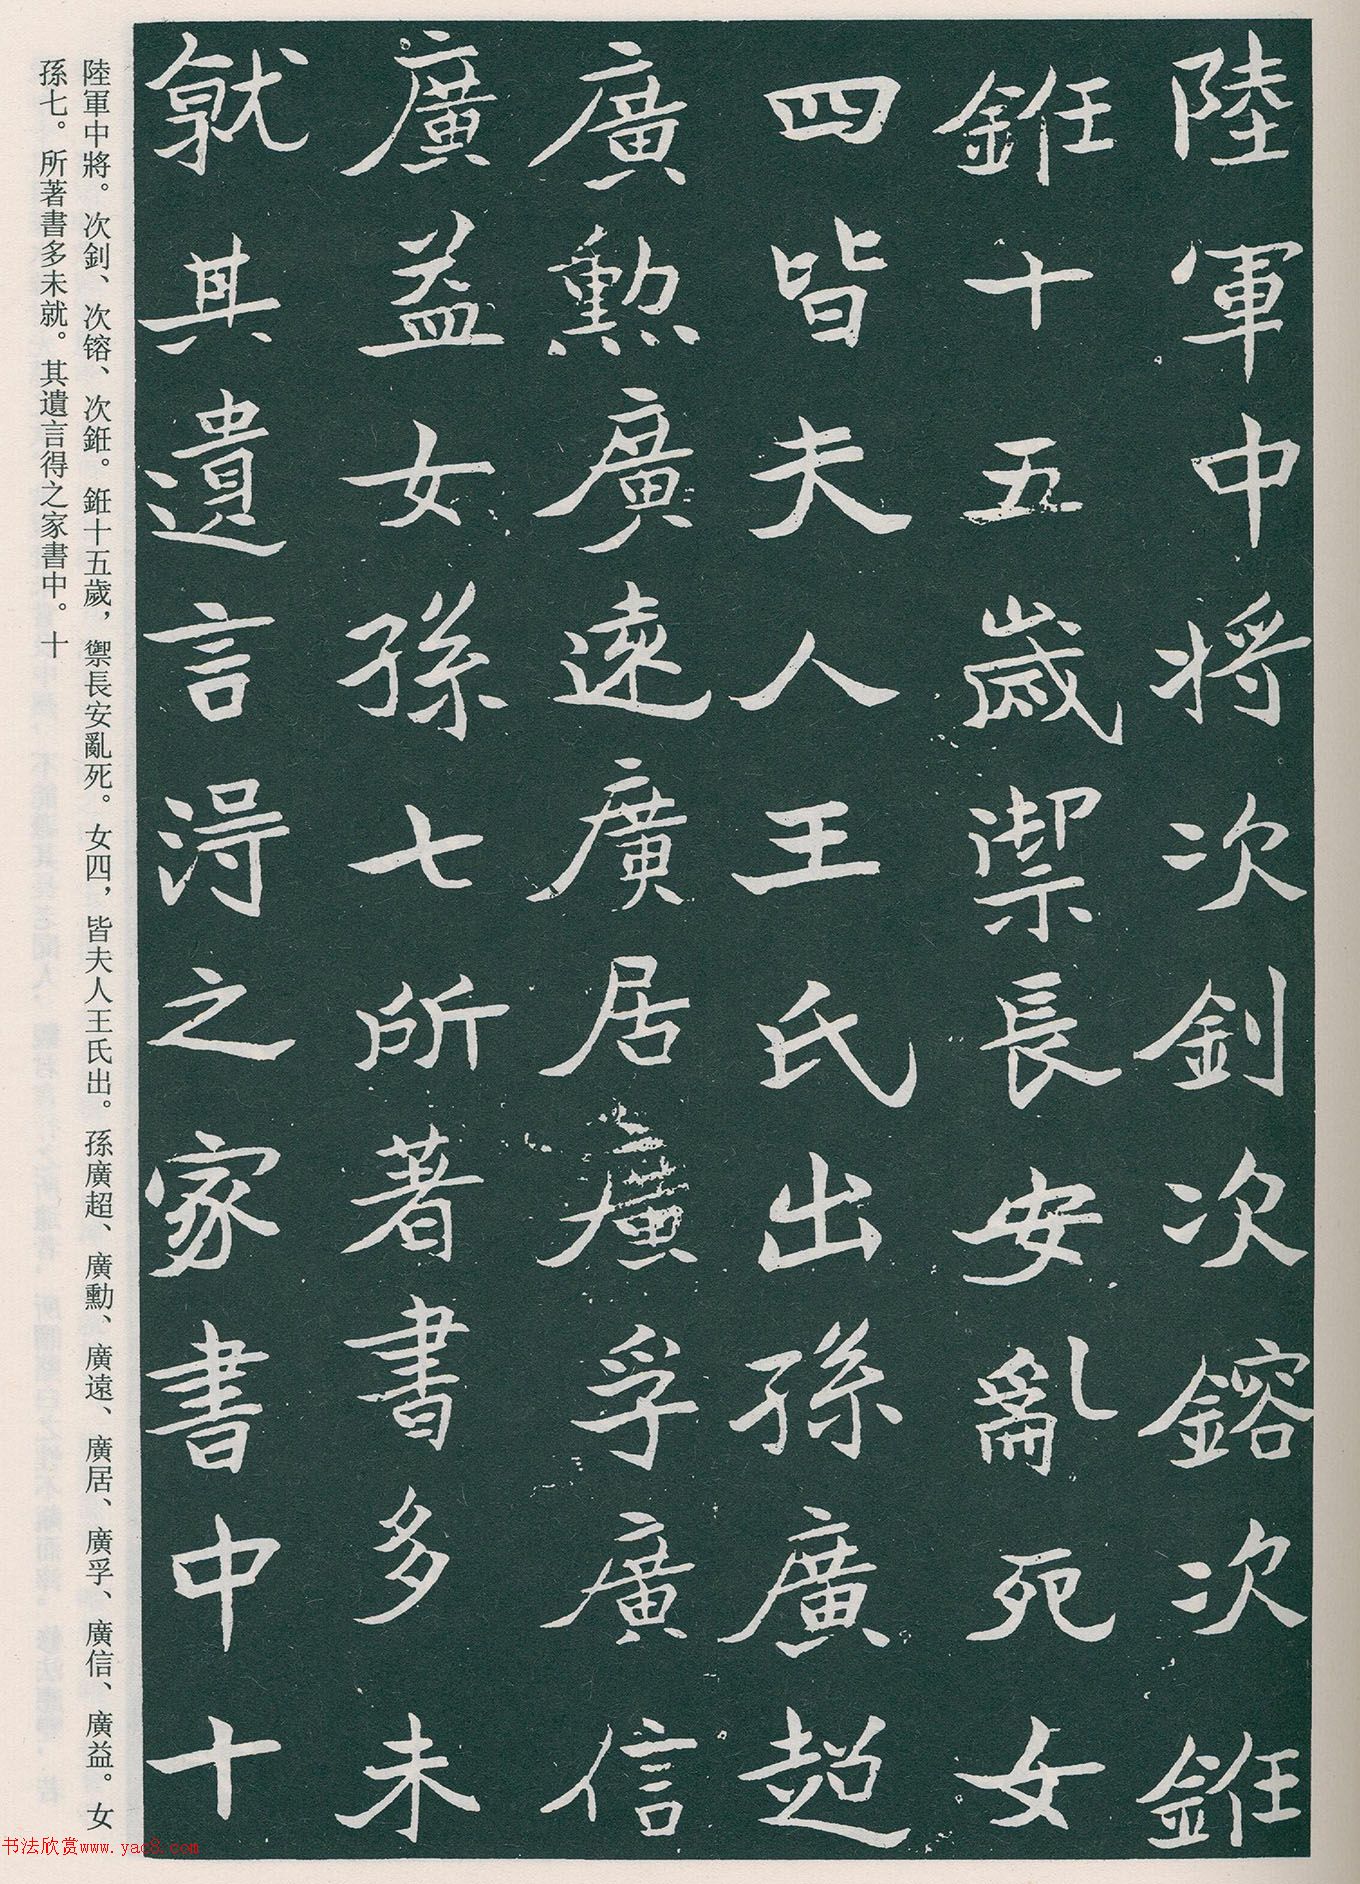 陸軍中將次釗次鎔次鉎
鉎十五歲禦長安亂死女
四皆夫人王氏出孫廣超
廣勲廣遠廣居廣孚廣信
廣益女孫七所著書多未
就其遺言得之家書中十
陸軍中將。次釗、次镕、次鉎。鉎十五歲，禦長安亂死。女四，皆夫人王氏出。孫廣超、廣勳、廣遠、廣居、廣孚、廣信、廣益。女
孫七。所著書多未就。其遺言得之家書中。十
书法欣赏www.yac8.com